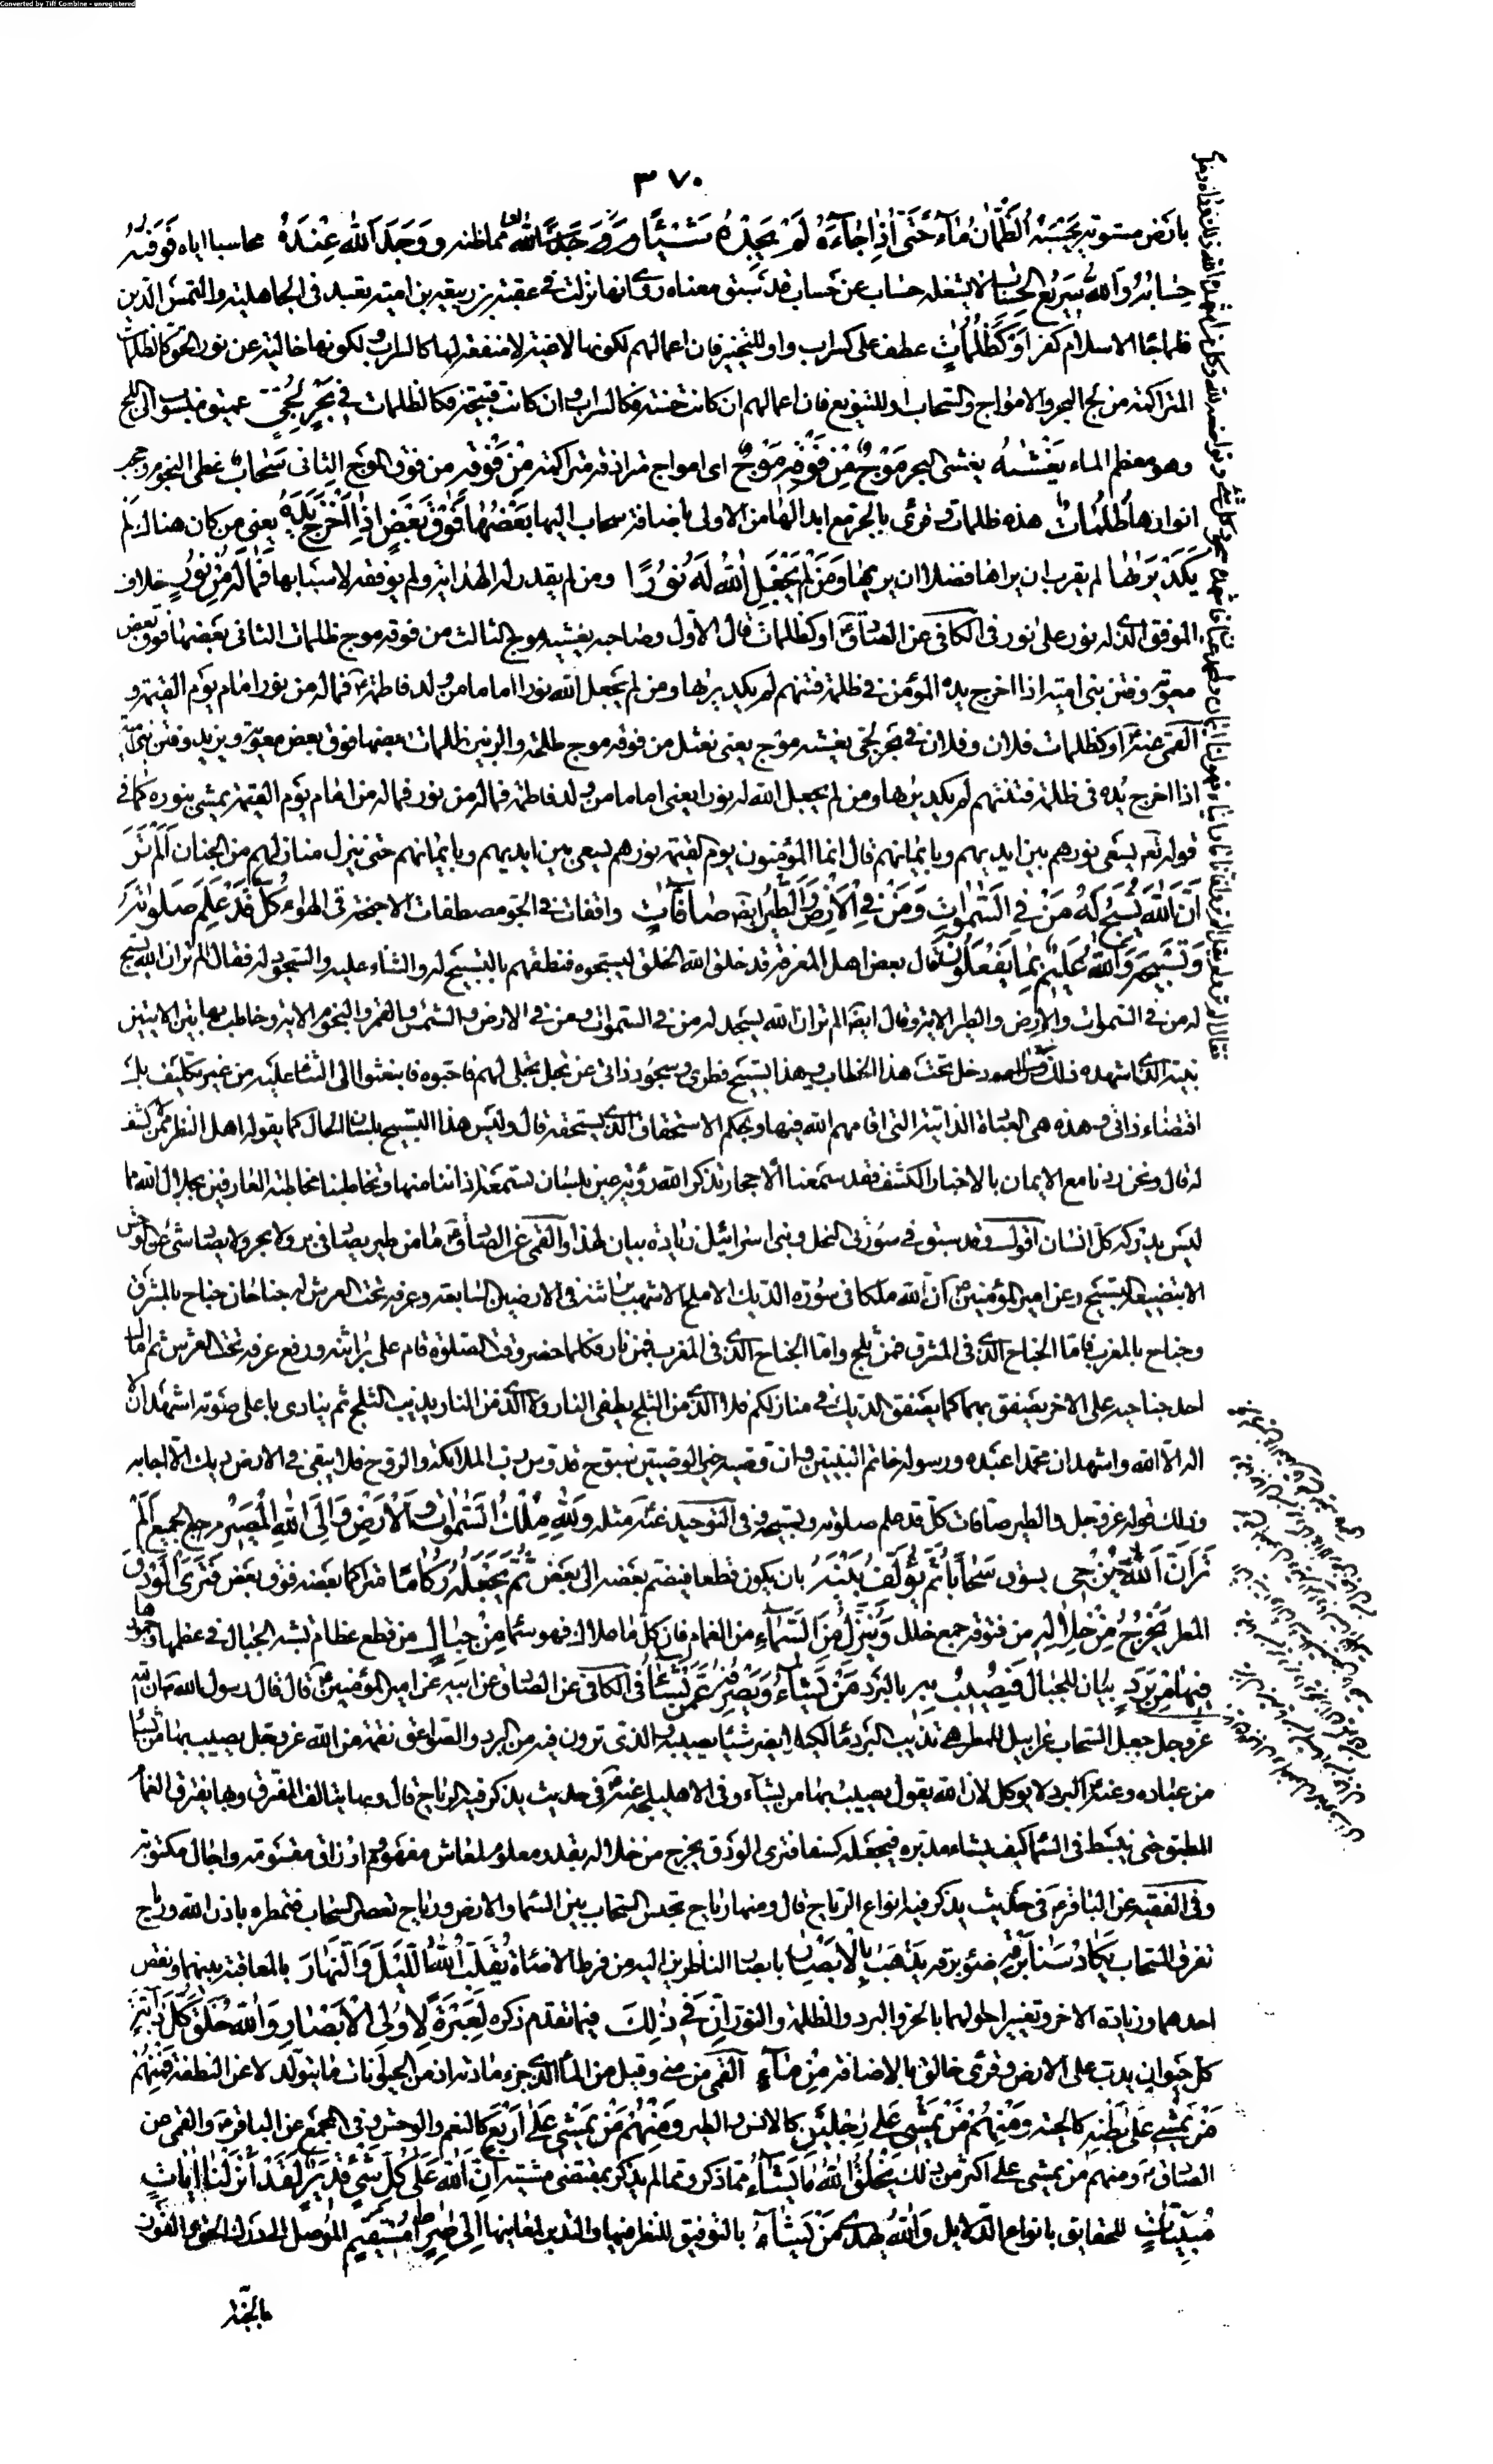 Converted by Tiff Combine - unregistered
٣٧٠
بارض مستوية يَحْسَبُهُ الظَّمْآنُ مَاءً حَتَّى إِذَا جَاءَهُ لَمْ يَجِدْهُ شَيْئًا مما ظنه وَوَجَدَ اللَّهَ عِنْدَهُ محاسبا اياه فَوَفَّيهُ
حِسَابَهُ وَاللَّهُ سَرِيعُ الْحِسَابِ لا يشغله حساب عن حساب قد سبق معناه روى انها نزلت في عتبة بن ربيعة بن امية تعبد في الجاهلية والتمس الدين
فلما جاء الاسلام كفر أَوْ كَظُلُمَاتٍ عطف على كسراب واو للتخيير فان اعمالهم لكونها لاغية لا منفعة لها كالسراب ولكونها خالية عن نور الحق كالظلمات
المتراكمة من لجج البحر والامواج والسحاب او للتنويع فان اعمالهم ان كانت حسنة فكالسراب وان كانت قبيحة فكالظلمات فِي بَحْرٍ لُجِّيٍّ عميق منسوب الى اللج
وهو معظم الماء يَغْشَيهُ يغشى البحر مَوْجٌ مِنْ فَوْقِهِ مَوْجٌ اى امواج مترادفة متراكمة مِنْ فَوْقِهِ من فوق الموج الثانى سَحَابٌ غطى النجوم وحجب
انوارها ظُلُمَاتٌ هذه ظلمات وقرئ بالجر مع ابدالها من الاولى باضافة سحاب اليها بَعْضُهَا فَوْقَ بَعْضٍ إِذَا أَخْرَجَ يَدَهُ يعنى من كان هناك لَمْ
يَكَدْ يَرَيهَا لم يقرب ان يراها فضلا ان يريها وَمَنْ لَمْ يَجْعَلِ اللَّهُ لَهُ نُورًا ومن لم يقدر له الهداية ولم يوفقه لاسبابها فَمَا لَهُ مِنْ نُورٍ خلاف
الموفق الذى له نور على نور فى الكافى عن الصادق ع او كظلمات قال الاول وصاحبه يغشيه موج الثالث من فوقه موج ظلمات الثانى بعضها فوق بعض
معوية وفتن بنى امية اذا اخرج يده المؤمن فى ظلمة فتنتهم لم يكد يريها ومن لم يجعل الله نورا اماما من ولد فاطمة ع فما له من نور امام يوم القيمة و
القمى عنه ع او كظلمات فلان وفلان في بحر لجى يغشيه موج يعنى نعثل من فوقه موج طلحة والزبير ظلمات بعضها فوق بعض معوية ويزيد وفتن بنى امية
اذا اخرج يده فى ظلمة فتنتهم لم يكد يريها ومن لم يجعل الله له نورا يعنى اماما من ولد فاطمة فما له من نور فما له من امام يوم القيمة يمشى بنوره كما فى
قوله تعه يسعى نورهم بين ايديهم وبايمانهم قال انما المؤمنون يوم القيمة نورهم يسعى بين ايديهم وبايمانهم حتى ينزل منازلهم من الجنان أَلَمْ تَرَ
أَنَّ اللَّهَ يُسَبِّحُ لَهُ مَنْ فِي السَّمَوَاتِ وَمَنْ فِي الْأَرْضِ وَالطَّيْرُ ايضا صَافَّاتٍ واقفات فى الجو مصطفات الاجنحة فى الهواء كُلٌّ قَدْ عَلِمَ صَلَوتَهُ
وَتَسْبِيحَهُ وَاللَّهُ عَلِيمٌ بِمَا يَفْعَلُونَ قال بعض اهل المعرفة قد خلق الله الخلق ليسبحوه فنطقهم بالتسبيح له والثناء عليه والسجود له فقال الم تر ان الله يسبح
له من فى السموات والارض والطير الاية وقال ايضا الم تر ان الله يسجد له من فى السموات ومن فى الارض والشمس والقمر والنجوم الاية وخاطب بهاتين الايتين
نبيه الذى اشهده ذلك
دخل تحت هذا الخطاب وهذا تسبيح فطرى وسجود ذاتى عن تجل تجلى لهم فاحبوه فانبعثوا الى الثناء عليه من غير تكليف بل
اقتضاء ذاتى وهذه هى العبادة الذاتية التى اقامهم الله فيها وبحكم الاستحقاق الذى يستحقه قال وليس هذا التسبيح بلسان الحال كما يقوله اهل النظر ممن لا كشف
له قال ونحن زدنا مع الايمان بالاخبار الكشف فقد سمعنا الاحجار تذكر الله رؤية عين بلسان تسمعه اذاننا منها وتخاطبنا مخاطبة العارفين بجلال الله مما
ليس يدركه كل انسان اقول وقد سبق فى سورتى النحل وبنى اسرائيل زيادة بيان لهذا والقمى عن الصادق ع ما من طير يصاد فى بر ولا بحر ولا يصاد شئ من الوحش
الا بتضييعه التسبيح وعن امير المؤمنين ع ان لله ملكا فى صورة الديك الاملح الاشهب براثنه فى الارضين السابعة وعرفه تحت العرش له جناحان جناح بالمشرق
وجناح بالمغرب فاما الجناح الذى فى المشرق فمن ثلج واما الجناح الذى فى المغرب فمن نار فكلما حضر وقت الصلوة قام على براثنه ورفع عرفه تحت العرش ثم امال
احد جناحيه على الاخر يصفق بهما كما يصفق الديك فى منازلكم فلا الذى من الثلج يطفى النار ولا الذى من النار يذيب الثلج ثم ينادى باعلى صوته اشهد ان لا
اله الا الله واشهد ان محمدا عبده ورسوله خاتم النبيين وان وصيه خير الوصيين سبوح قدوس رب الملائكة والروح فلا يبقى فى الارض ديك الا اجابه
وذلك قوله عز وجل والطير صافات كل قد علم صلوته وتسبيحه وفى التوحيد عنه ع مثله وَلِلَّهِ مُلْكُ السَّمَوَاتِ وَالْأَرْضِ وَإِلَى اللَّهِ الْمَصِيرُ مرجع الجميع أَلَمْ
تَرَ أَنَّ اللَّهَ يُزْجِي يسوق سَحَابًا ثُمَّ يُؤَلِّفُ بَيْنَهُ بان يكون قطعا فيضم بعضه الى بعض ثُمَّ يَجْعَلُهُ رُكَامًا متراكما بعضه فوق بعض فَتَرَى الْوَدْقَ
المطر يَخْرُجُ مِنْ خِلَالِهِ من فتوقه جمع خلل وَيُنَزِّلُ مِنَ السَّمَاءِ من الغمام فان كل ما علاك فهو سماء مِنْ جِبَالٍ من قطع عظام تشبه الجبال فى عظمها وجمودها
فِيهَا مِنْ بَرَدٍ بيان للجبال فَيُصِيبُ بِهِ بالبرد مَنْ يَشَاءُ وَيَصْرِفُهُ عَمَّنْ يَشَاءُ فى الكافى عن الصادق عن ابيه عن امير المؤمنين ع قال قال رسول الله ص ان الله
عز وجل جعل السحاب غرابيل للمطر هى تذيب البرد ماء لكيلا يضر شيئا يصيبه والذى ترون فيه من البرد والصواعق نقمة من الله عز وجل يصيب بها من يشاء
من عباده وعنه ع البرد لا يوكل لان الله يقول يصيب بها من يشاء وفى الاهليلجه عنه ع فى حديث يذكر فيه الرياح قال وبها يتالف المفترق وبها يفترق الغمام
المطبق حتى ينبسط فى السماء كيف يشاء مدبره فيجعله كسفا فترى الودق يخرج من خلاله بقدر معلوم لمعاش مفهوم وارزاق مقسومة واجال مكتوبة
وفى الفقيه عن الباقر ع فى حديث يذكر فيه انواع الرياح قال ومنها رياح تحبس السحاب بين السماء والارض ورياح تعصر السحاب فتمطره باذن الله ورياح
تفرق السحاب يَكَادُ سَنَا بَرْقِهِ ضوء برقه يَذْهَبُ بِالْأَبْصَارِ بابصار الناظرين اليه من فرط الاضاءة يُقَلِّبُ اللَّهُ اللَّيْلَ وَالنَّهَارَ بالمعاقبة بينهما ونقص
احدهما وزيادة الاخر وتغيير احوالهما بالحر والبرد والظلمة والنور إِنَّ فِي ذَلِكَ فيما تقدم ذكره لَعِبْرَةً لِأُولِي الْأَبْصَارِ وَاللَّهُ خَلَقَ كُلَّ دَابَّةٍ
كل حيوان يدب على الارض وقرئ خالق بالاضافة مِنْ مَاءٍ القمى من منى وقيل من الماء الذى جزء مادته اذ من الحيوانات ما يتولد لا عن النطفة فَمِنْهُمْ
مَنْ يَمْشِي عَلَى بَطْنِهِ كالحية وَمِنْهُمْ مَنْ يَمْشِي عَلَى رِجْلَيْنِ كالانس والطير وَمِنْهُمْ مَنْ يَمْشِي عَلَى أَرْبَعٍ كالنعم والوحش وفى المجمع عن الباقر ع والقمى عن
الصادق ع ومنهم من يمشى على اكثر من ذلك يَخْلُقُ اللَّهُ مَا يَشَاءُ مما ذكر ومما لم يذكر بمقتضى مشيته إِنَّ اللَّهَ عَلَى كُلِّ شَيْءٍ قَدِيرٌ لَقَدْ أَنْزَلْنَا آيَاتٍ
مُبَيِّنَاتٍ للحقايق بانواع الدلايل وَاللَّهُ يَهْدِي مَنْ يَشَاءُ بالتوفيق للنظر فيها والتدبر لمعانيها إِلَى صِرَاطٍ مُسْتَقِيمٍ الموصل الى درك الحق والفوز
بالجنة